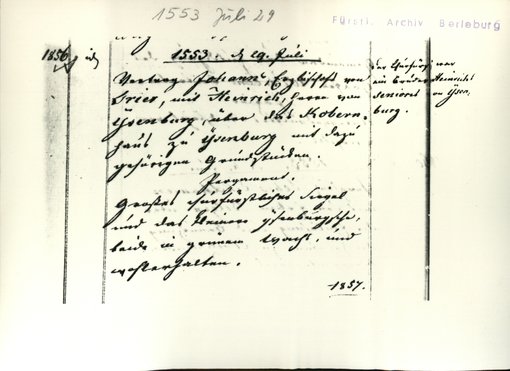 1553 Juli 29
Fürstl. Archiv Berleburg
1856
1553. d. 29. Juli
Vertrag Johanns, Erzbischofs von
Trier, mit Heinrich, Herrn von
Ysenburg, über das Kobern
haus zu Ysenburg mit dazu
gehörigen Grundstücken.
Pergament.
Großes churfürstliches Siegel
und das kleinere ysenburgsche,
beide in grünem Wachs, und
wohlerhalten.
Der Churfürst war
ein Bruder Heinrichs
senioris von Ysen,
burg.
1857.